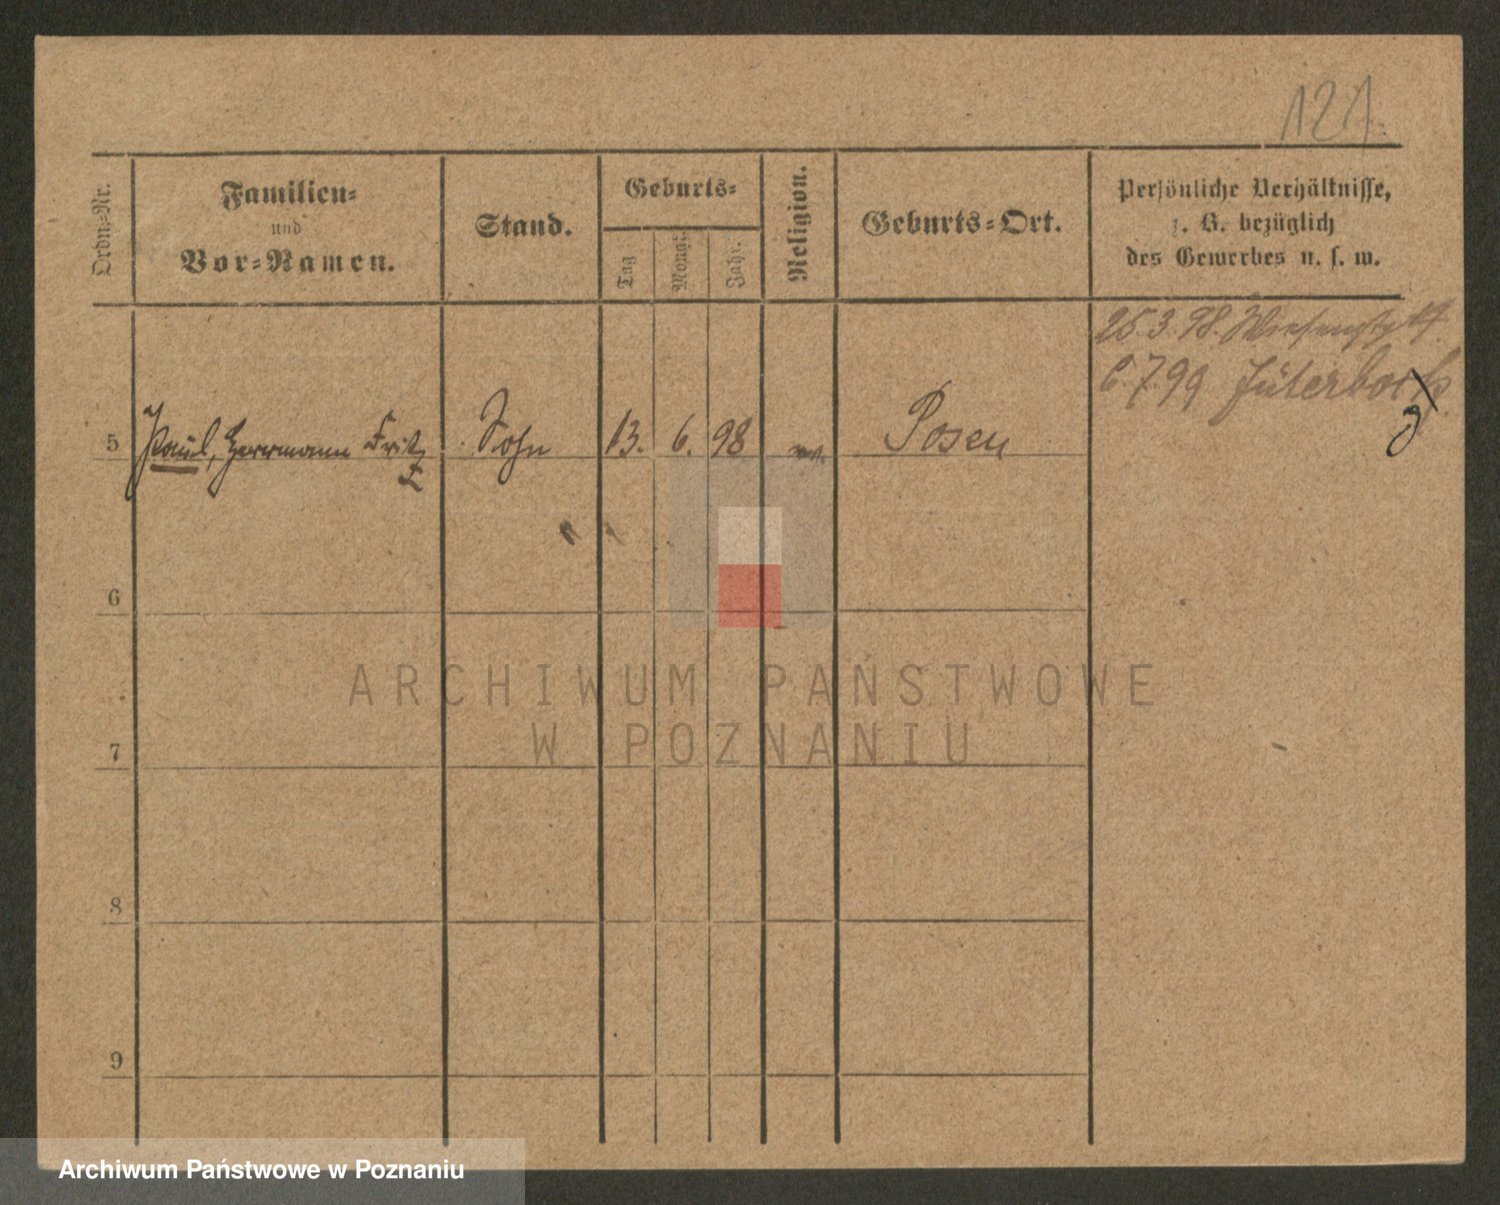 121.
Ordn.-Nr.
Familien-
und
Vor-Namen.
Stand.
Geburts-
Tag
Monat
Jahr.
Religion.
Geburts-Ort.
Persönliche Verhältnisse,
z. B. bezüglich
des Gewerbes u. s. w.
25.3.98. Wiesenstr. 17.
6.7.99 Jüterbock
5 Paul, Herrmann Fritz Sohn 13. 6. 98 Posen
6
7
8
9
ARCHIWUM PAŃSTWOWE
W POZNANIU
Archiwum Państwowe w Poznaniu